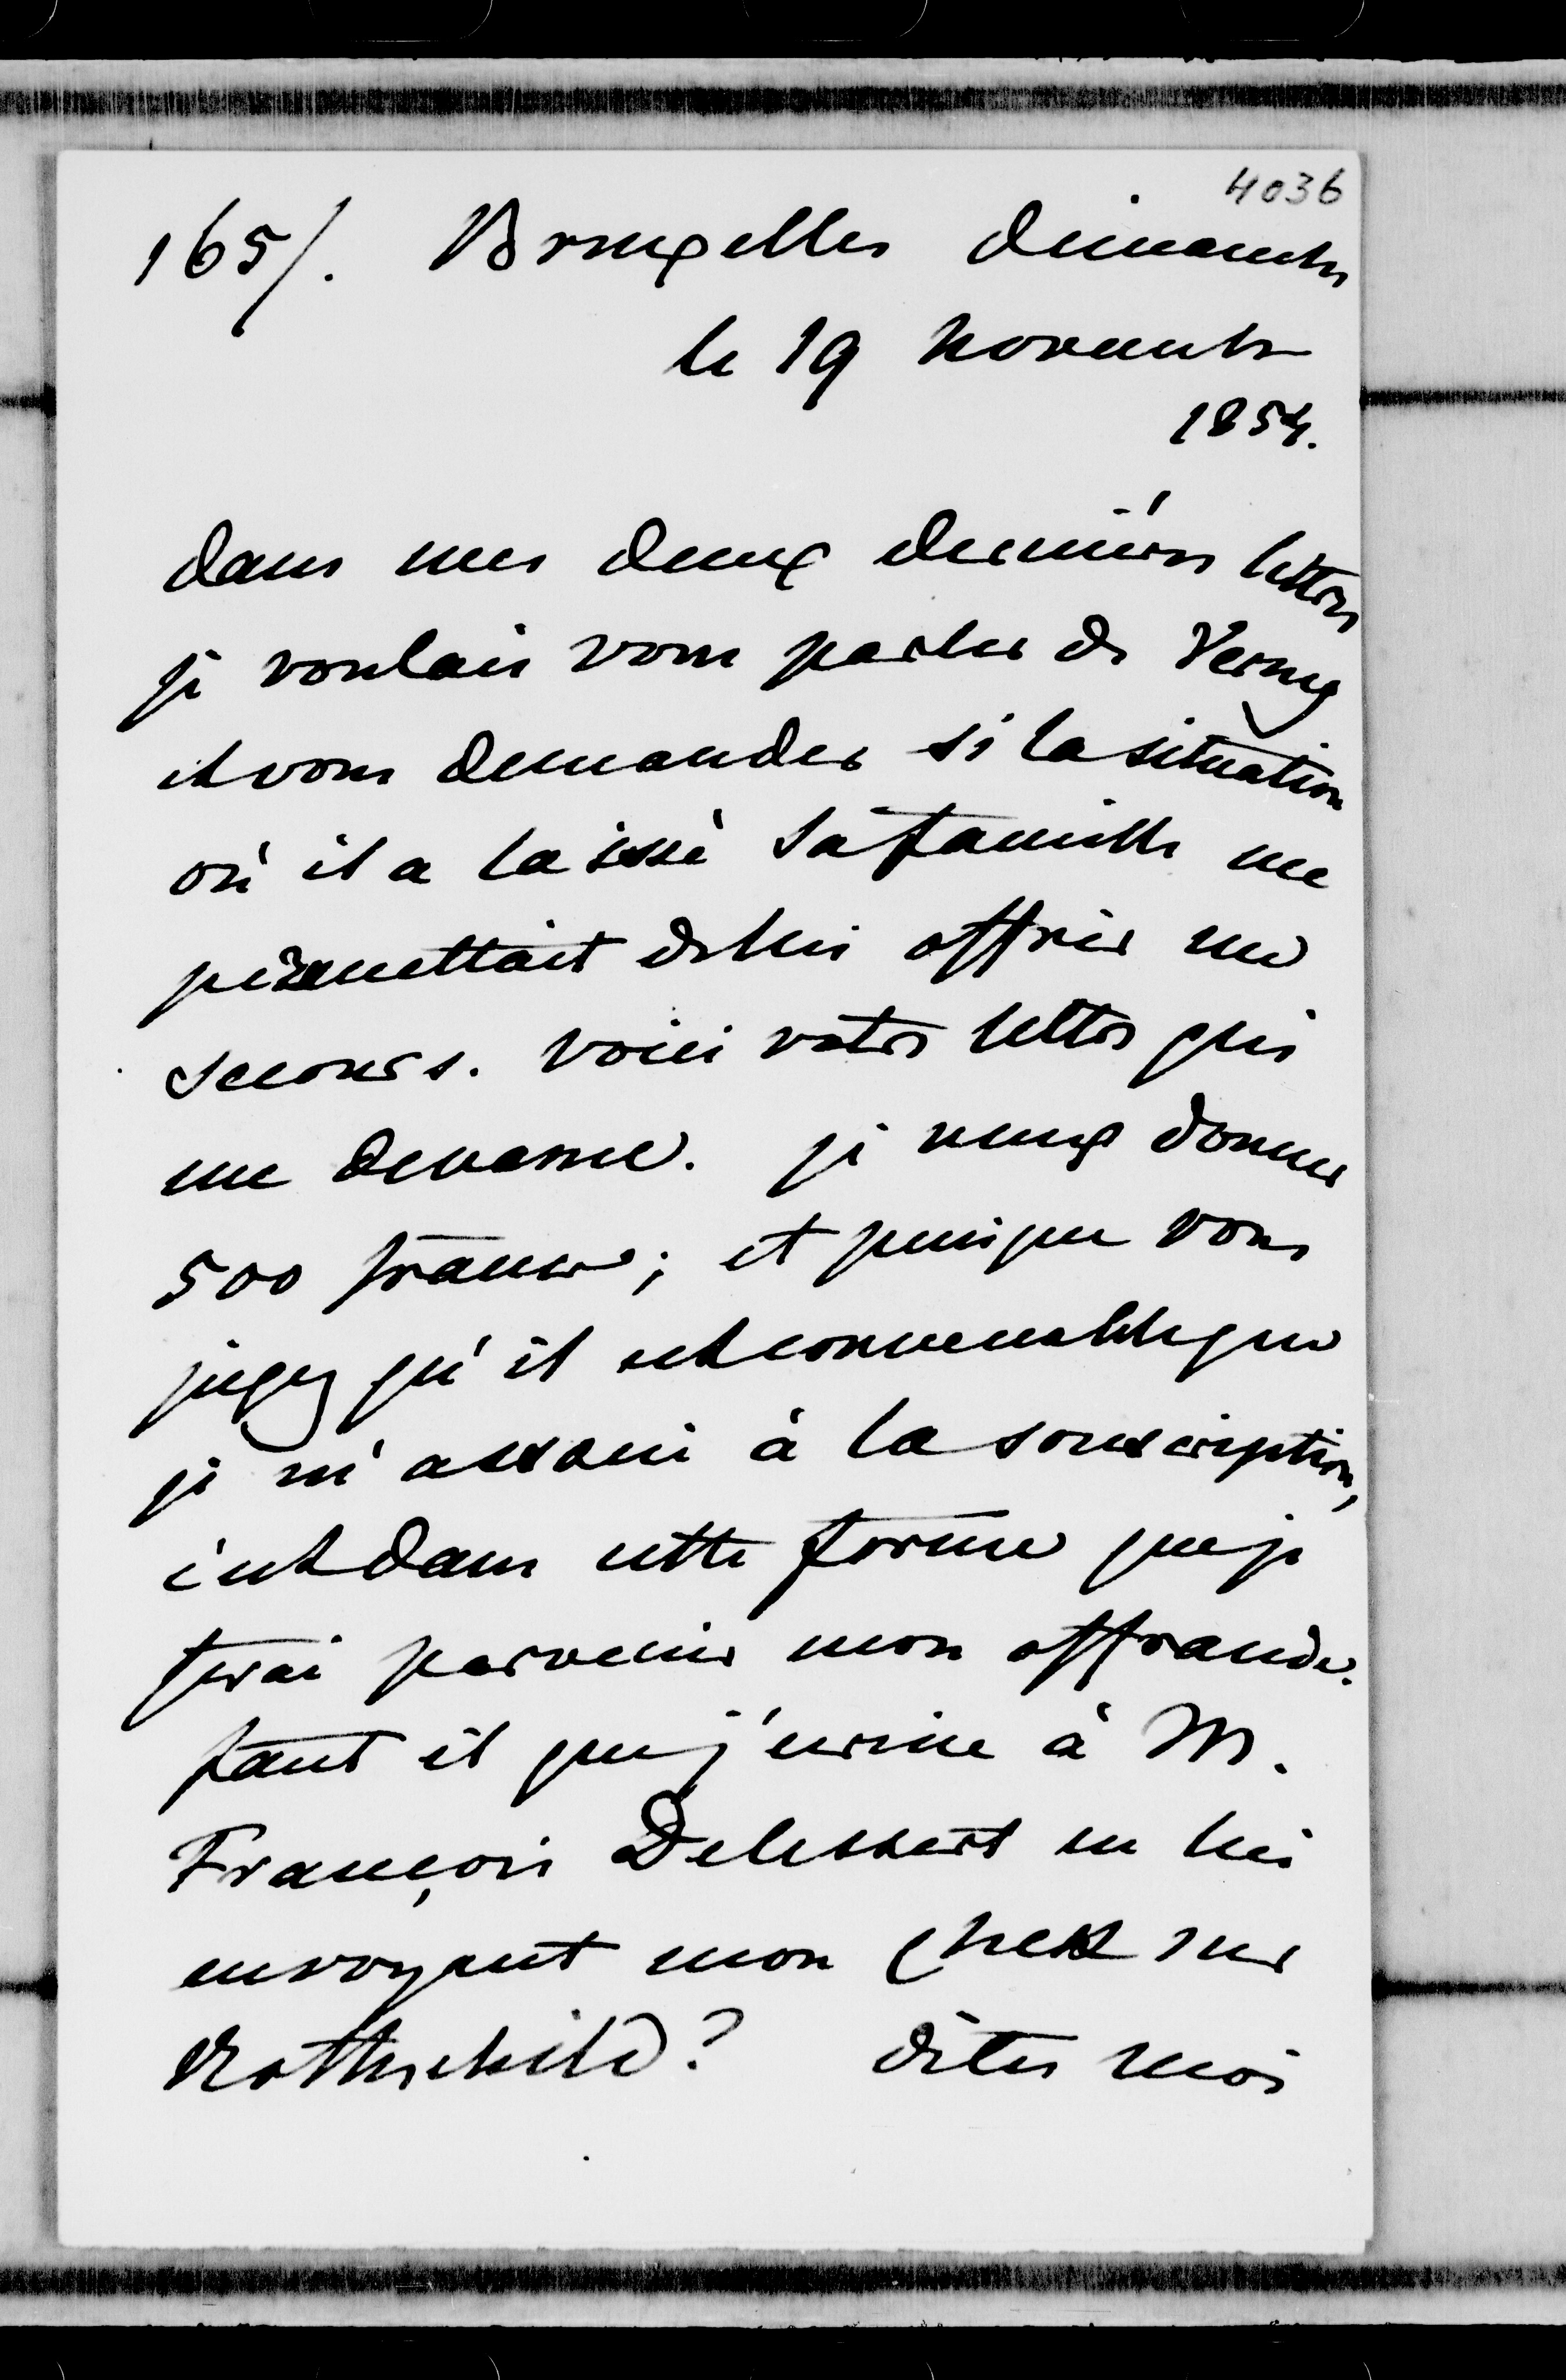 4036
165/. Bruxelles dimanche
le 19 novembre
1854.
dans mes deux dernières lettres
je voulais vous parler de Verny
et vous demander si la situation
où il a laissé sa famille me
permettait de lui offrir un
secours. voici votre lettre qui
me devance. je veux donner
500 francs ; et puisque vous
jugez qu'il est convenable que
je m'associe à la souscription,
c'est dans cette forme que je
ferai parvenir mon offrande.
faut il que j'écrive à M.
François Delessert en lui
envoyant mon chek sur
Rothschild ? dites moi